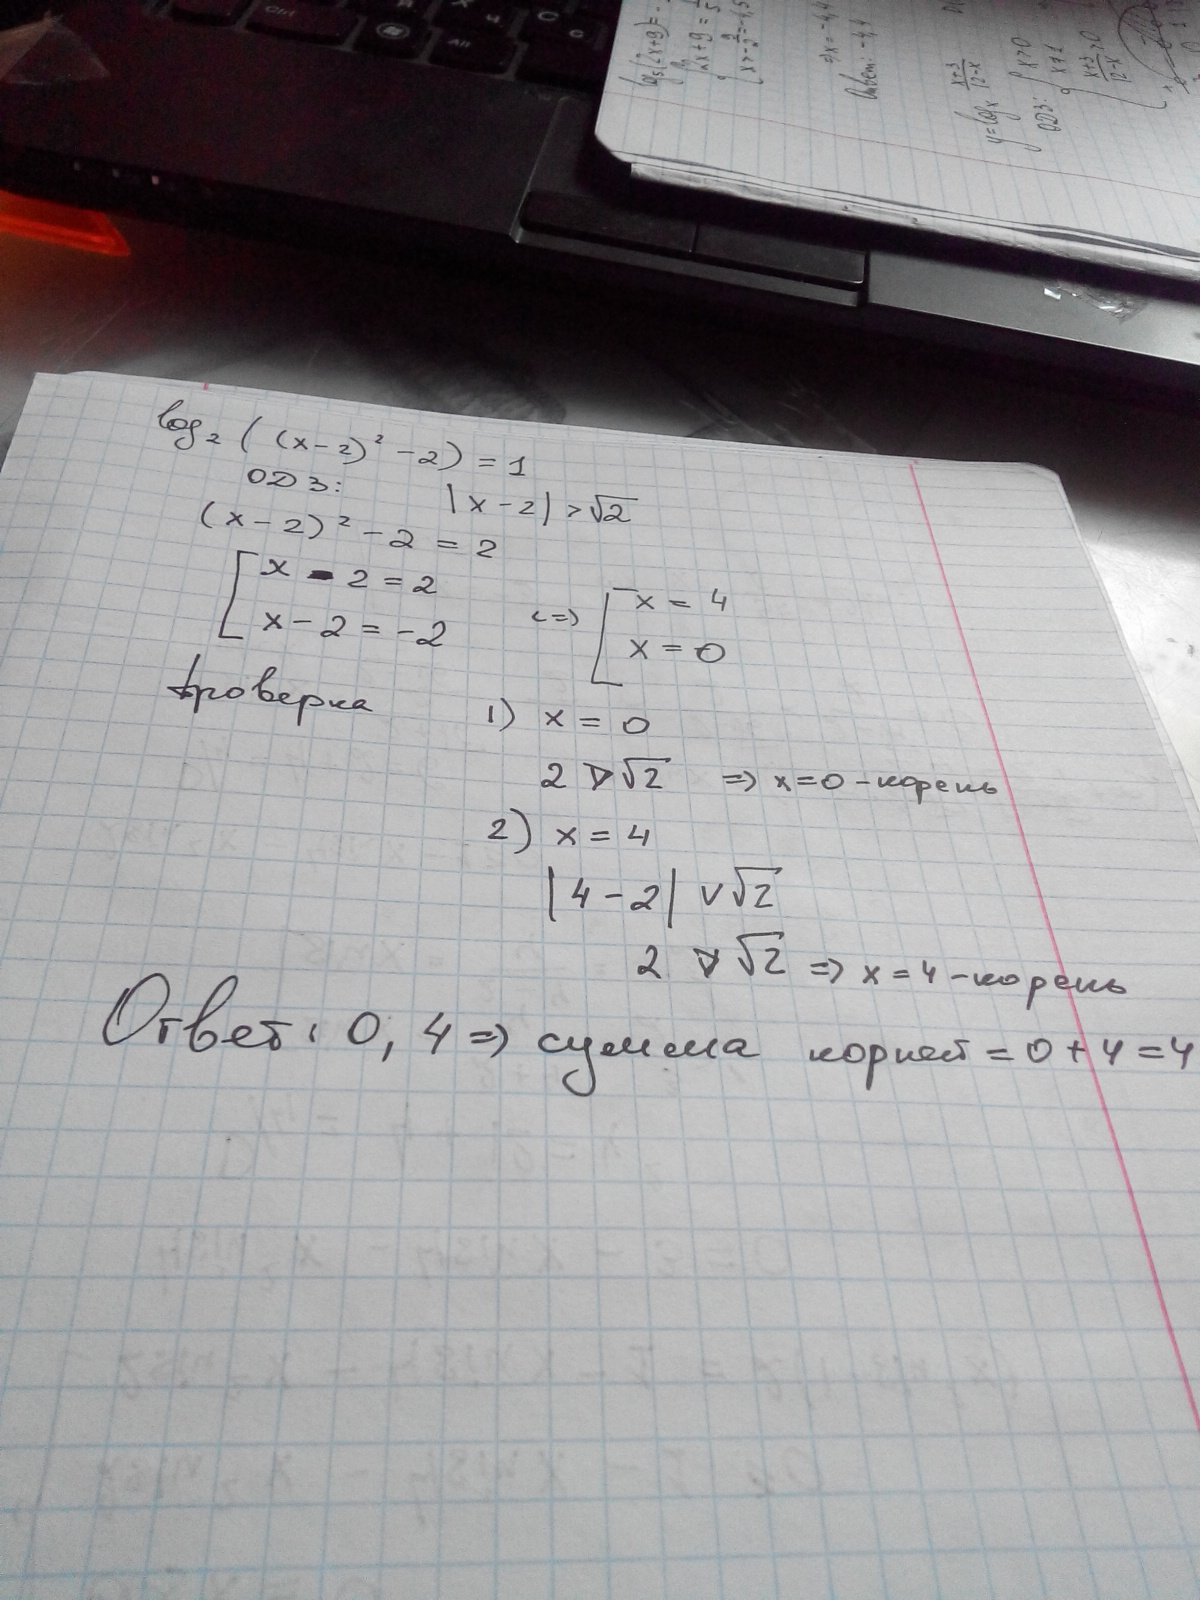 log₂((x-2)²-2) = 1
ОДЗ: |x-2| > √2
(x-2)² - 2 = 2
[ x - 2 = 2
x - 2 = -2
<=> [ x = 4
x = 0
Проверка
1) x = 0
2 > √2 => x = 0 - корень
2) x = 4
|4-2| ∨ √2
2 > √2 => x = 4 - корень
Ответ: 0, 4 => сумма корней = 0 + 4 = 4
log₅(2x+9) =
x > -9/2 = -4,5
=> x = -4,4
Ответ: -4,4
y = logₓ x+3/12-x
ОДЗ: { x > 0
x ≠ 1
x+3/12-x > 0
Ctrl
Alt